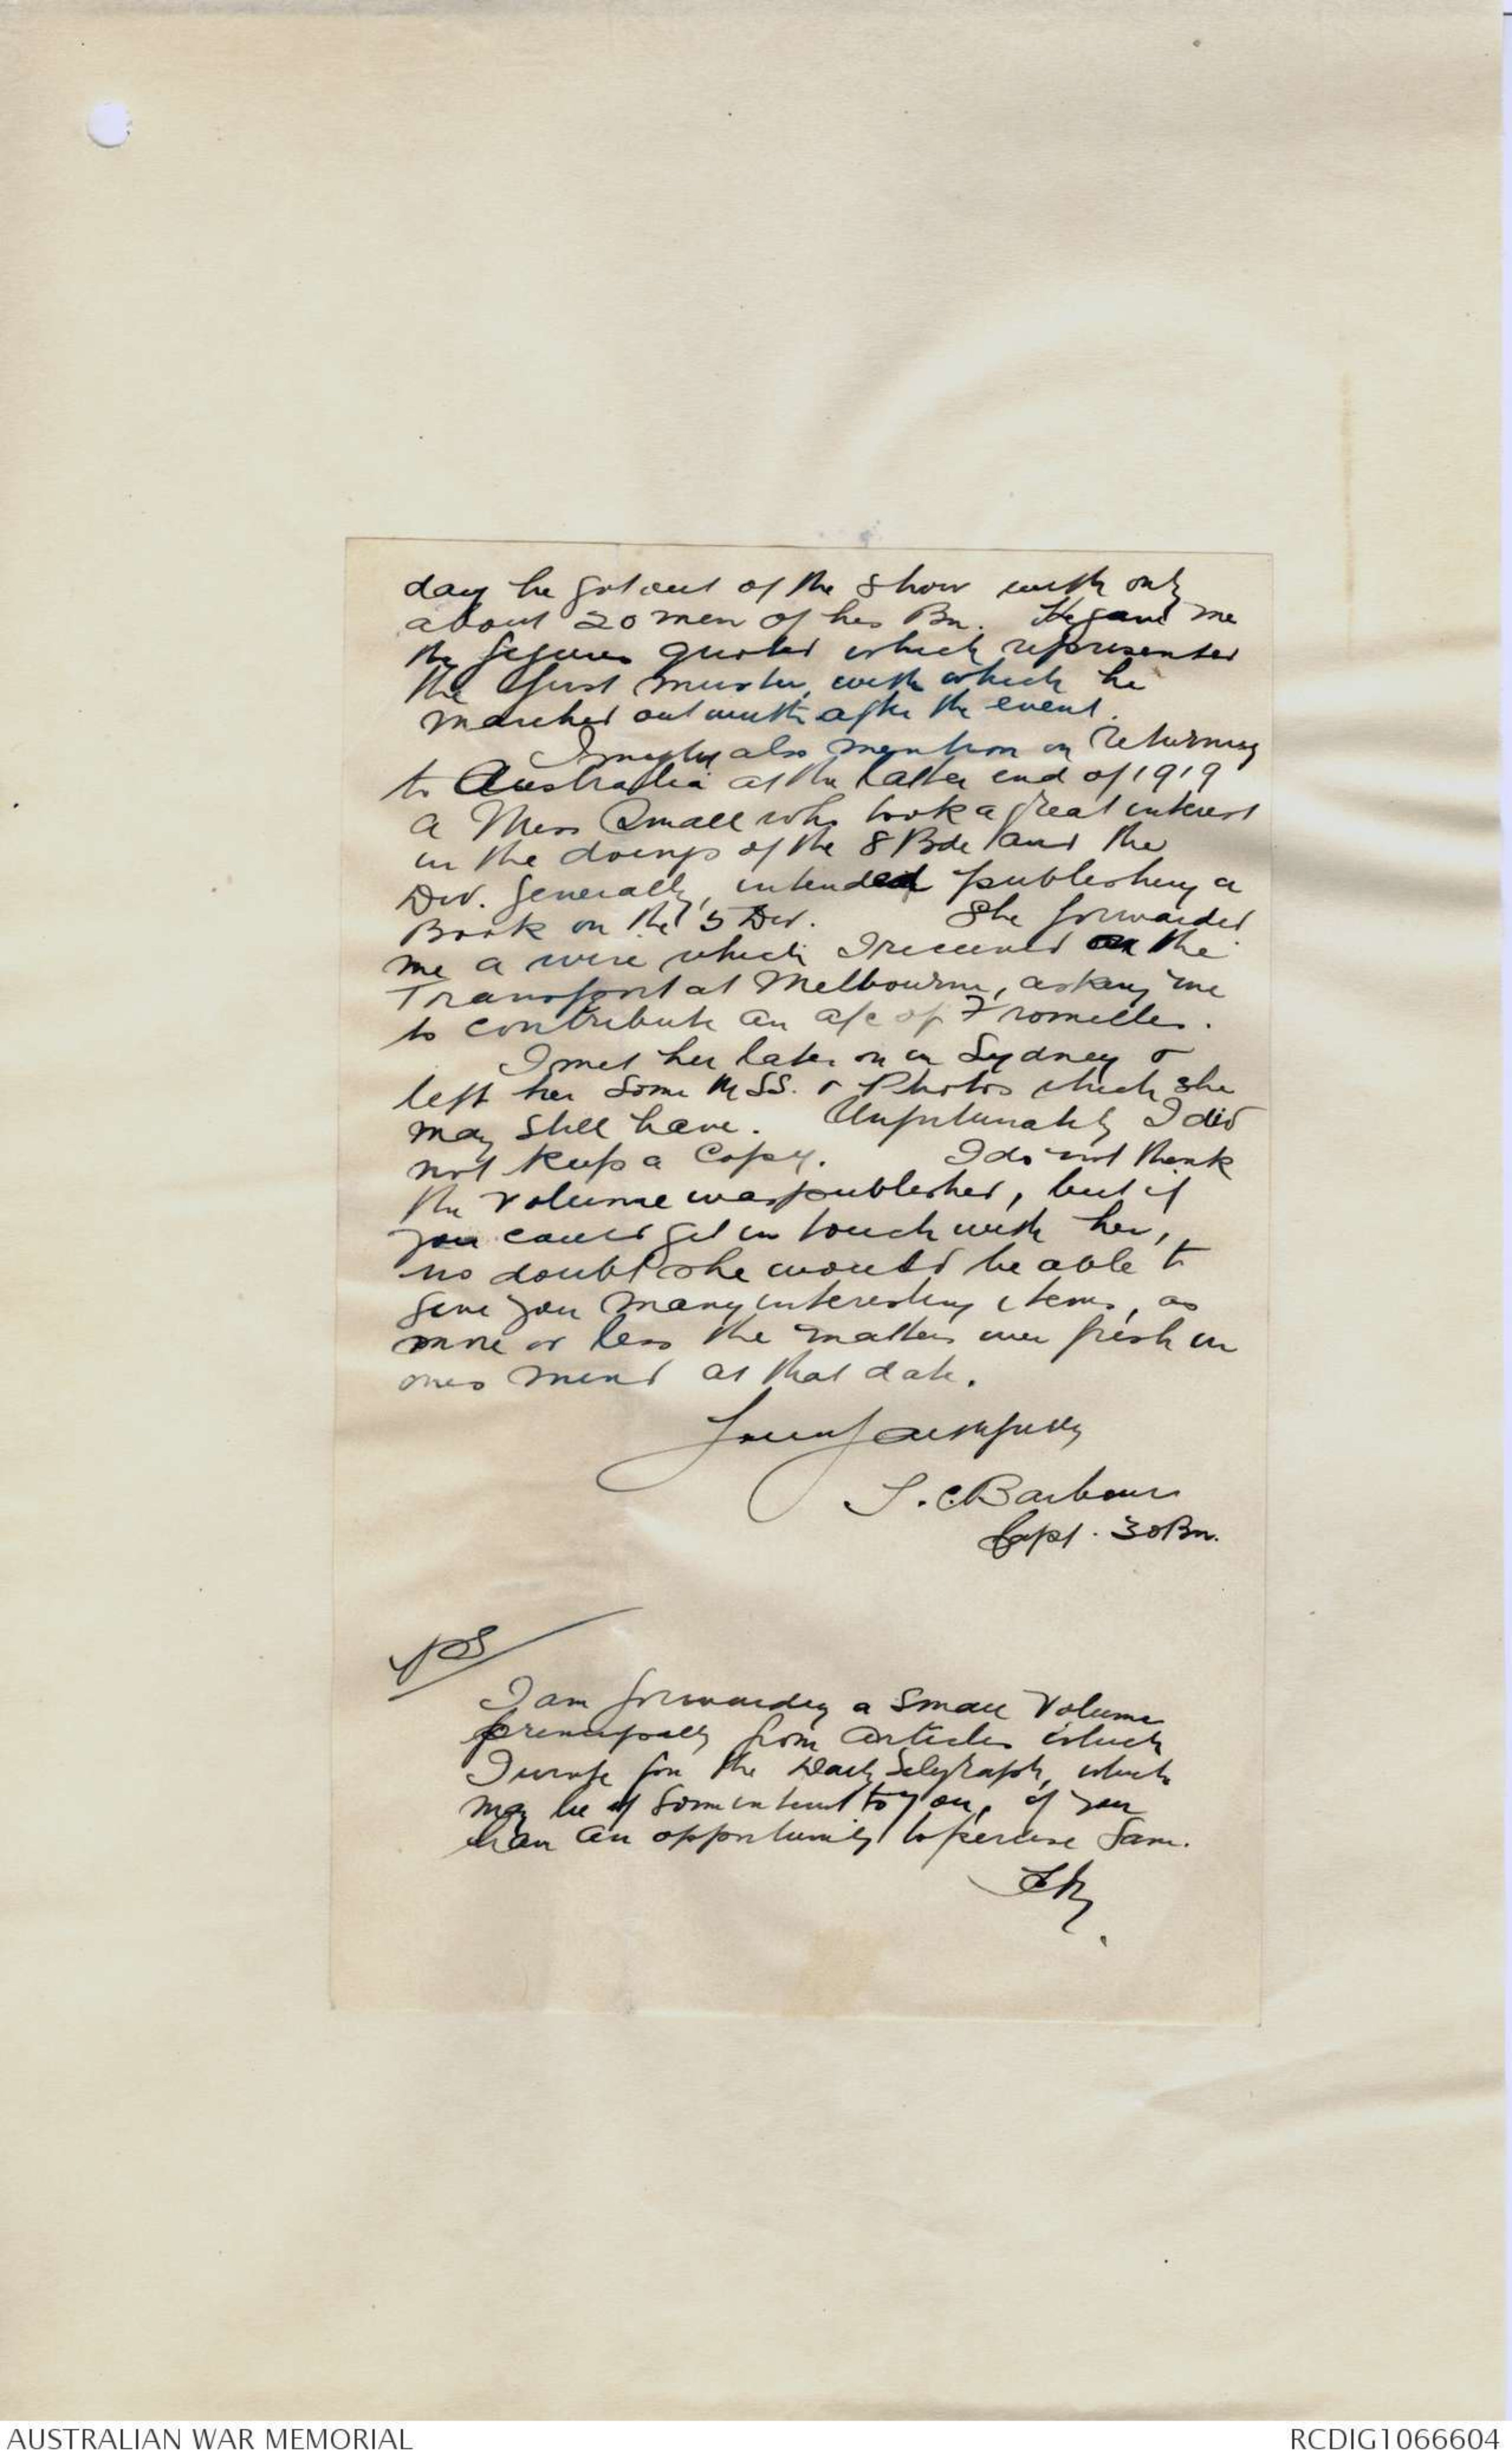 day he got out of the show with only
about 20 men of his Bn. He gave me
the figures quoted which represented
the first muster, with which he
marched out with after the event.
I might also mention on returning
to Australia at the latter end of 1919
a Miss Small who took a great interest
in the doings of the 8 Bde and the
Div. generally, intended publishing a
Book on the 5 Div. She forwarded
me a wire which I received on the
Transport at Melbourne, asking me
to contribute an a/c of Fromelles.
I met her later on in Sydney &
left her some MSS. & Photos which she
may still have. Unfortunately I did
not keep a copy. I do not think
the volume was published, but if
you could get in touch with her,
no doubt she would be able to
give you many interesting items, as
more or less the matters were fresh in
ones mind at that date.
Yours faithfully
T. C. Barbour
Capt. 30 Bn.
PS
I am forwarding a small volume
principally from articles which
I wrote for the Daily Telegraph, which
may be of some interest to you, if you
have an opportunity to peruse same.
AUSTRALIAN WAR MEMORIAL
RCDIG1066604